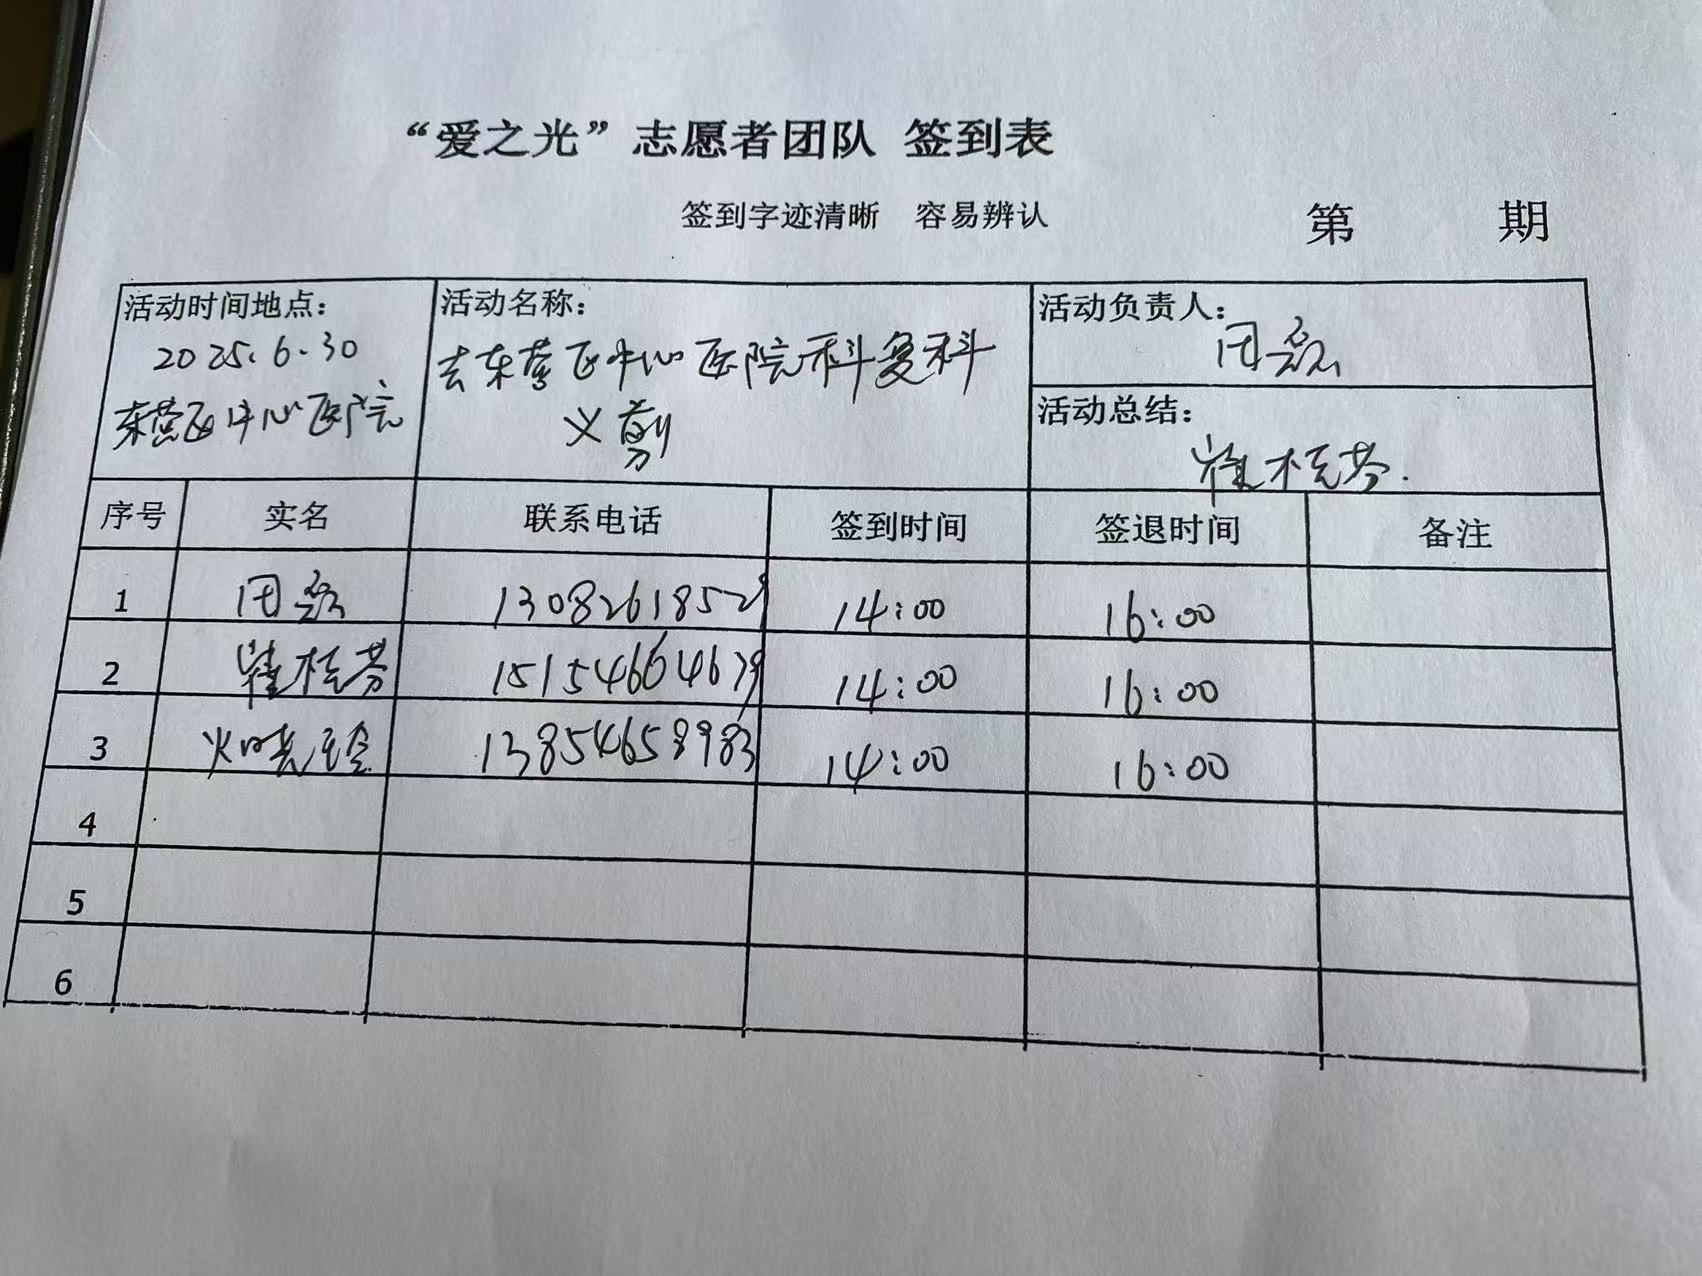 “爱之光”志愿者团队 签到表
签到字迹清晰 容易辨认
第 期
活动时间地点：
2025.6.30
东营区中心医院
活动名称：
去东营区中心医院科复科
义剪
活动负责人：
活动总结：
崔桂芬.
序号 实名 联系电话 签到时间 签退时间 备注
1 14:00 16:00
2 崔桂芬 14:00 16:00
3 13854658983 14:00 16:00
4
5
6